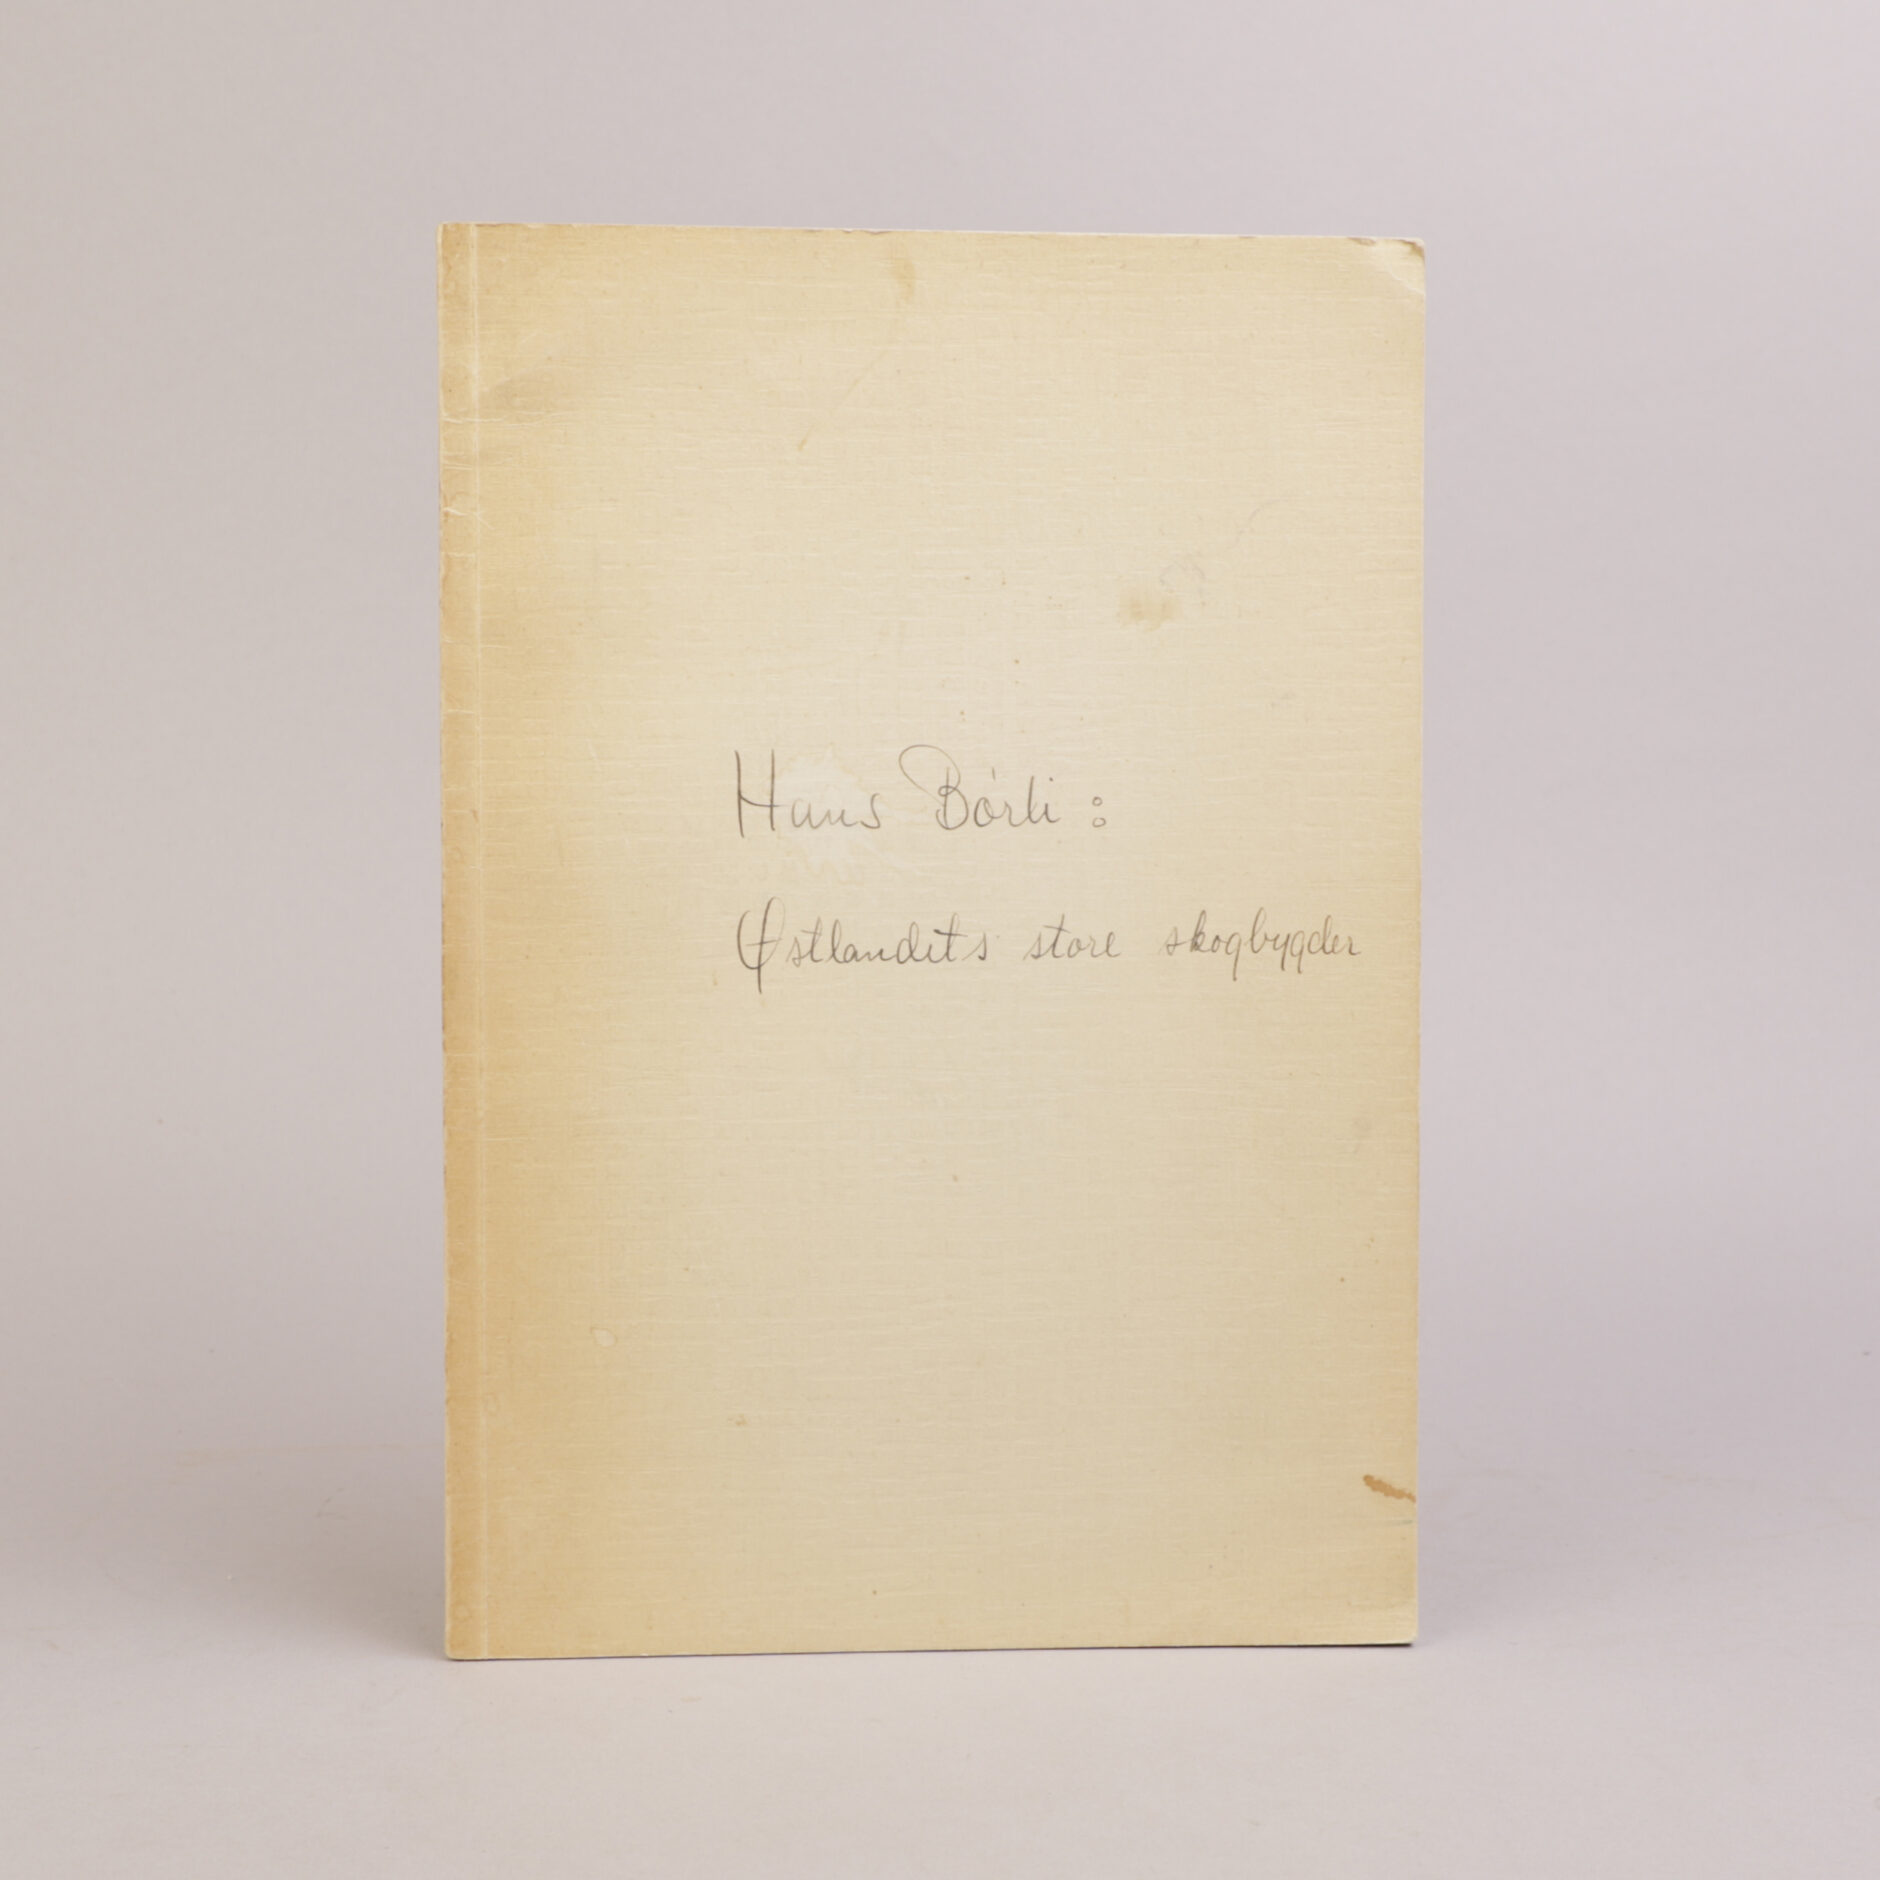 Hans Børli:
Østlandets store skogbygder